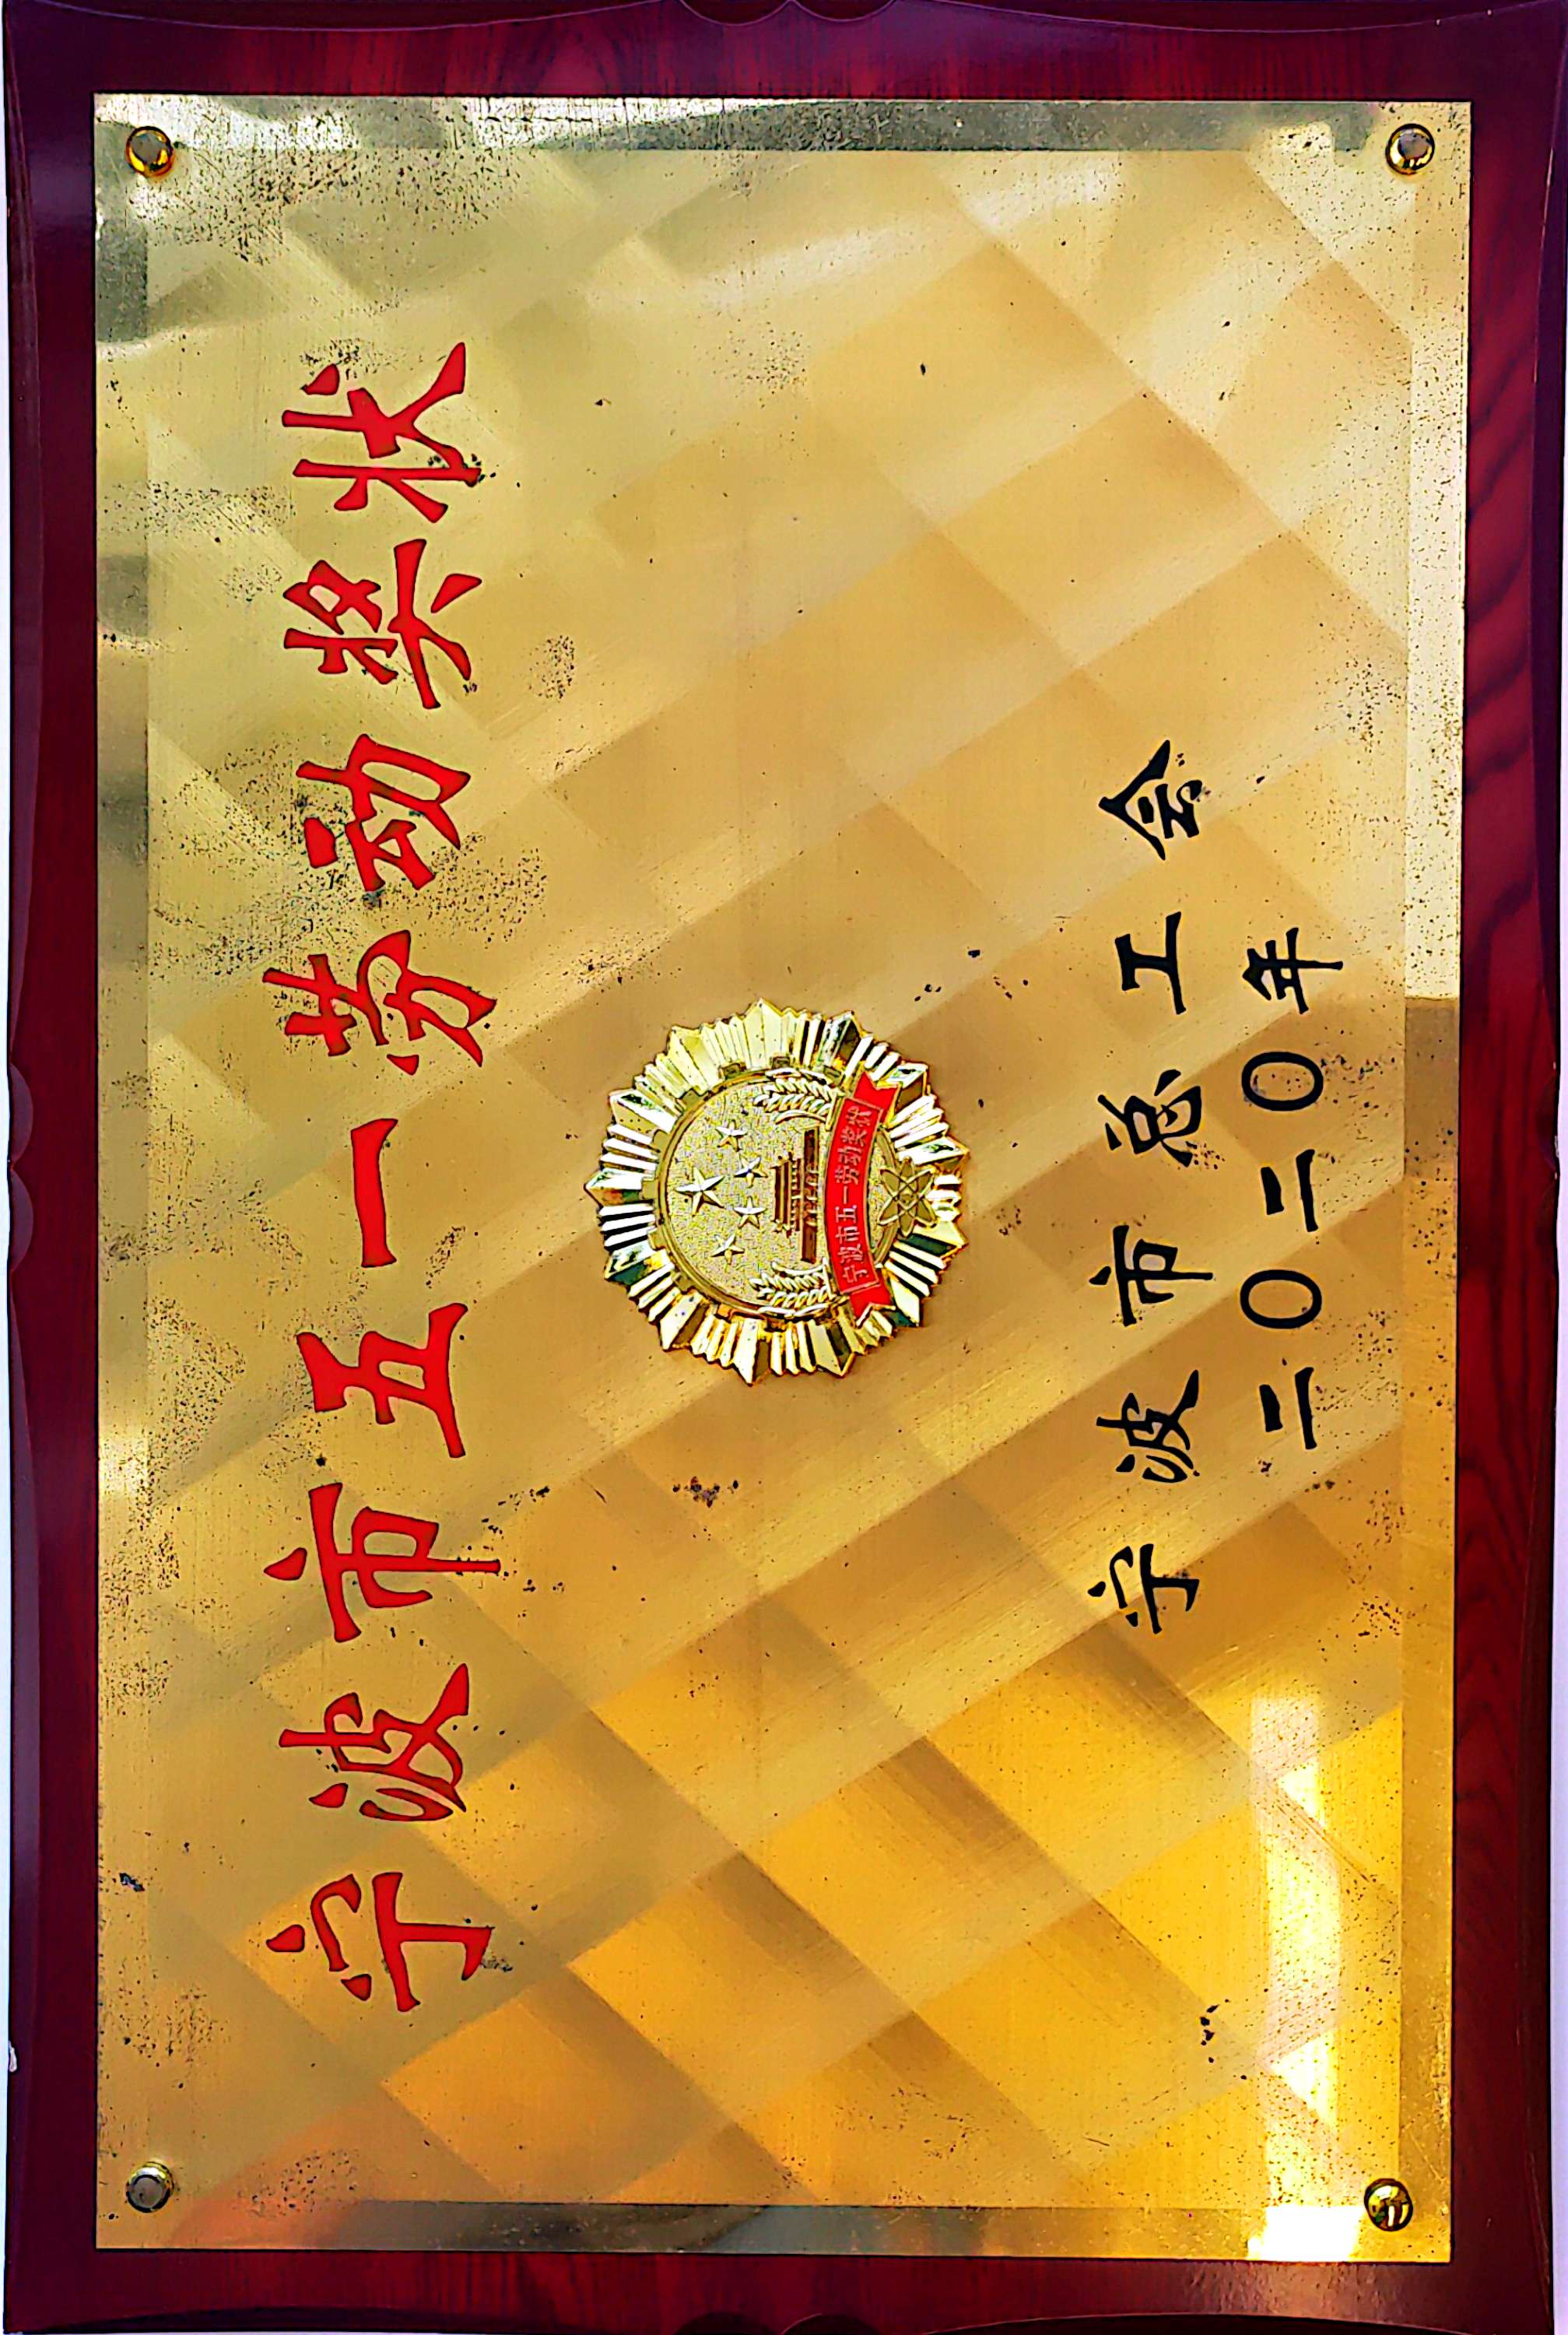 宁波市五一劳动奖状
宁波市五一劳动奖状
宁波市总工会
二〇二〇年